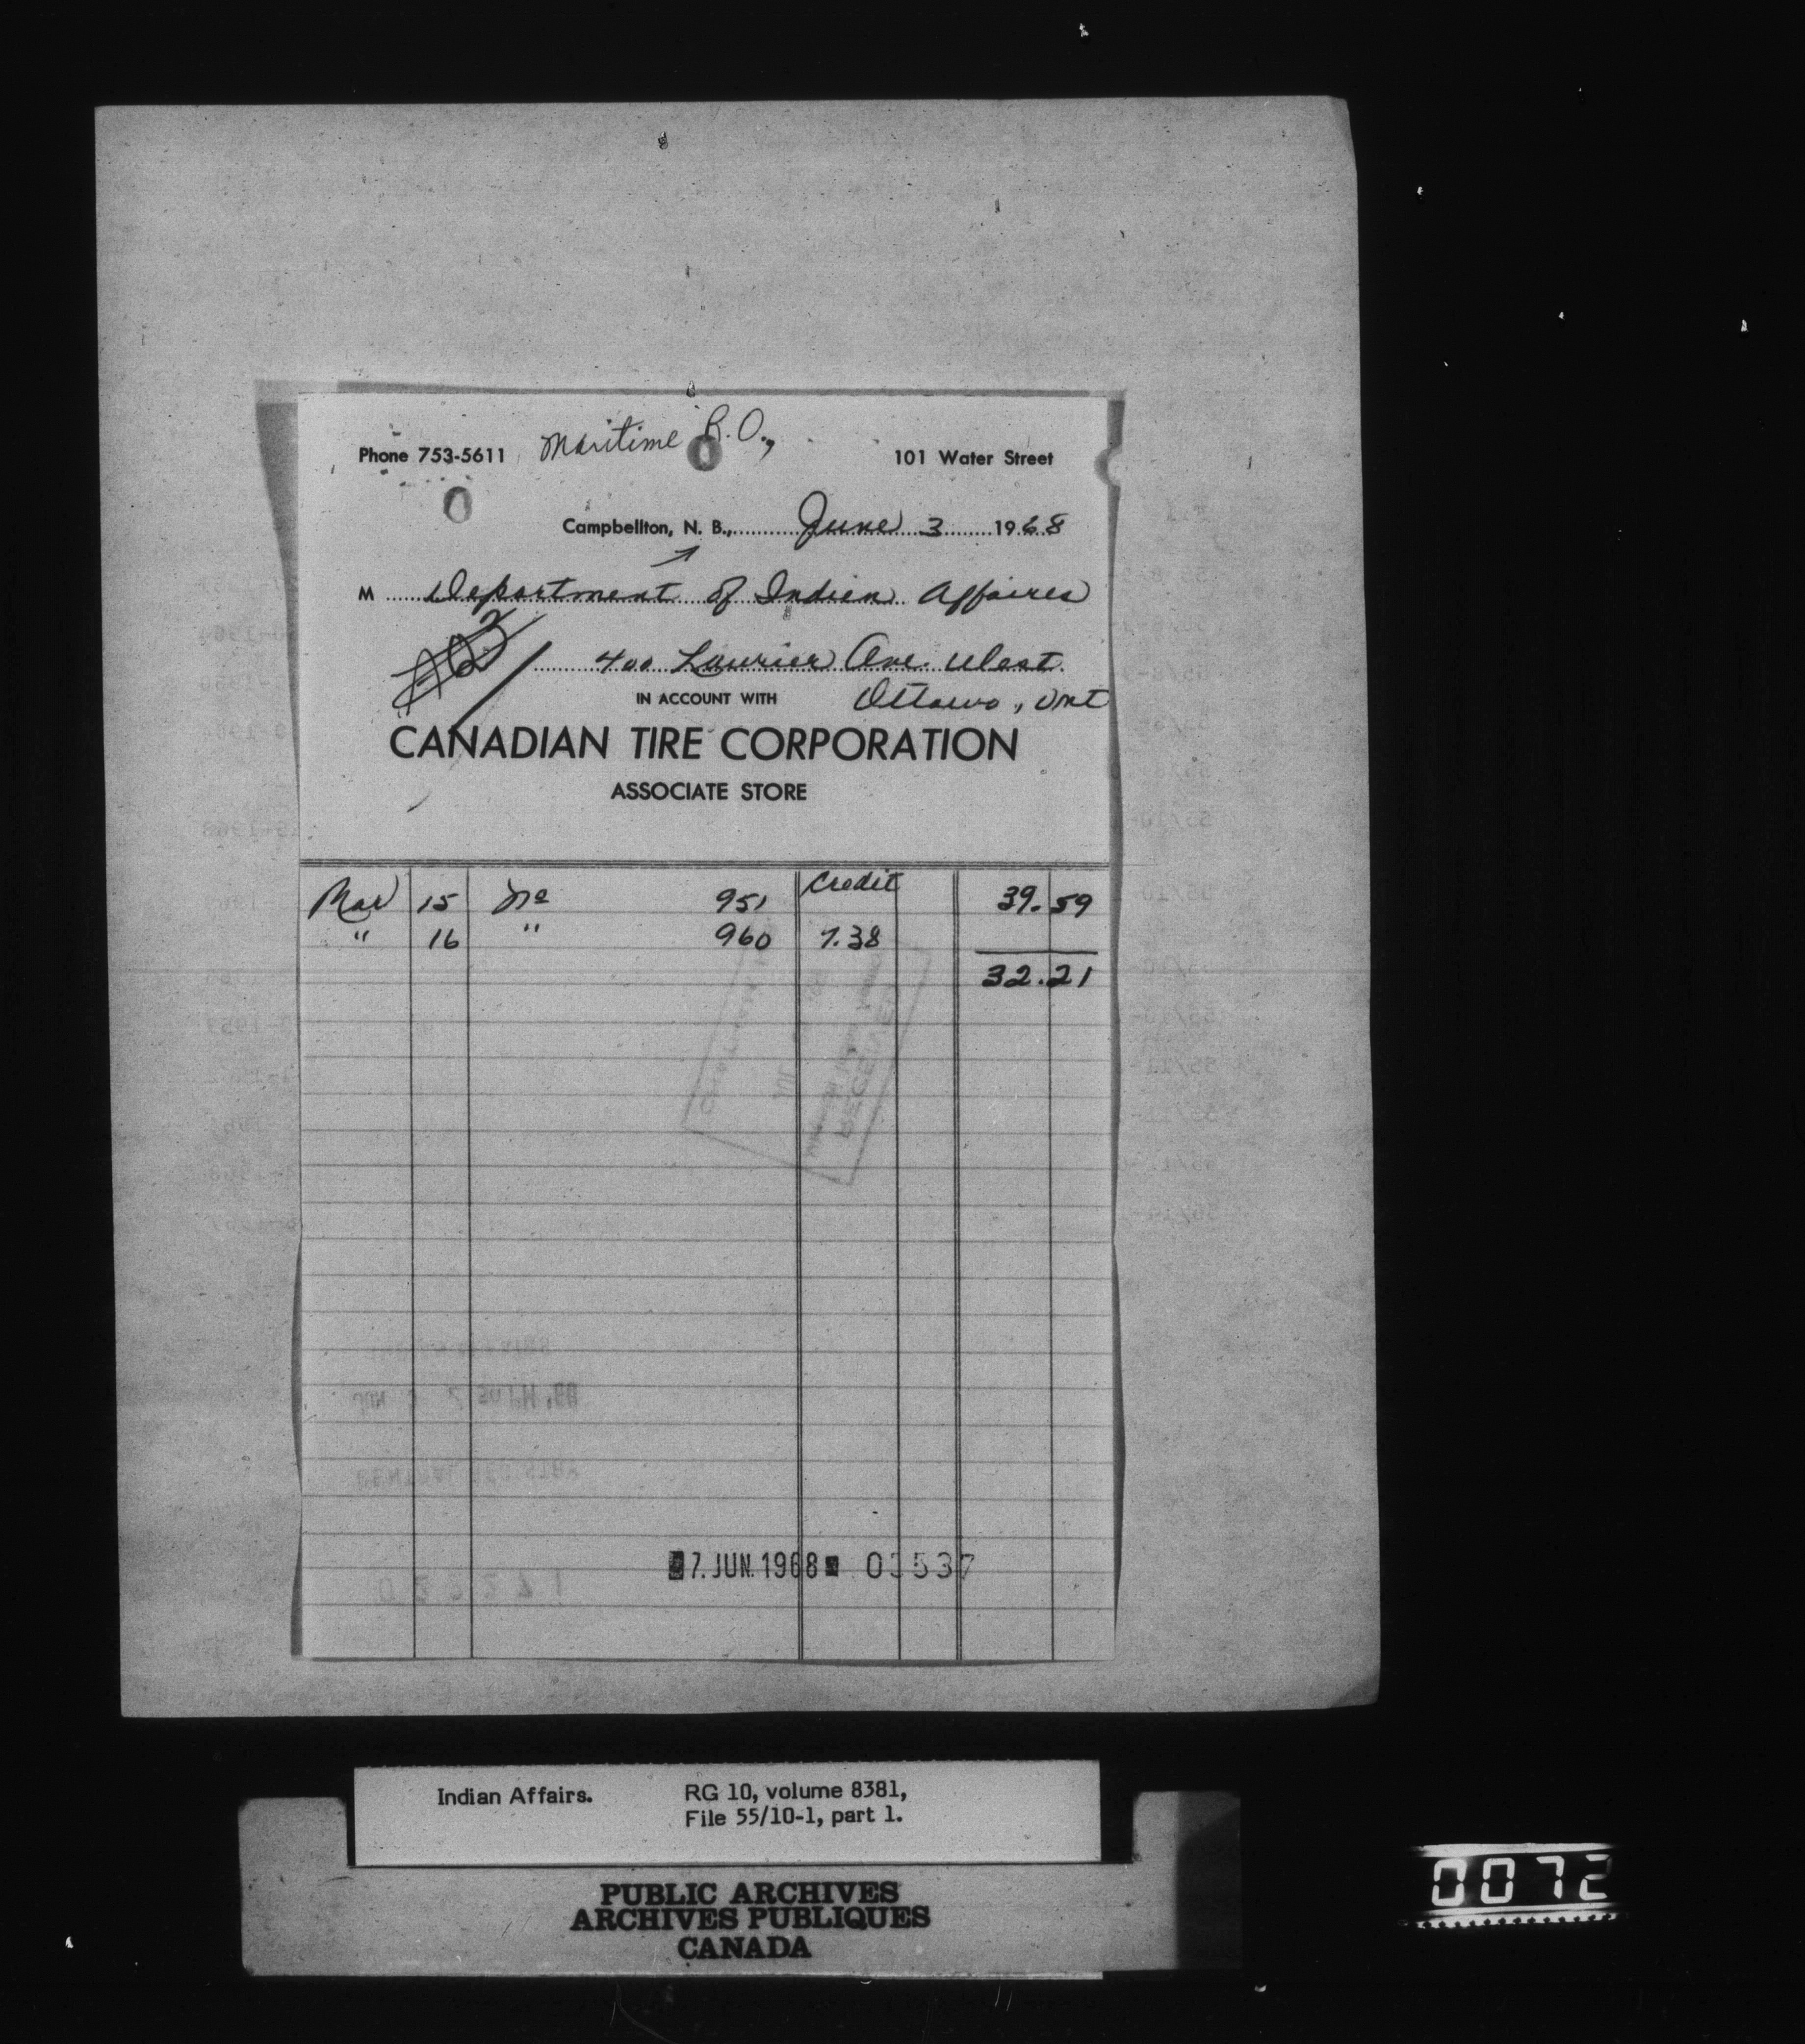 Maritime R.O.,
Phone 753-5611 101 Water Street
Campbellton, N. B., June 3 1968
M Department of Indian Affaires
400 Laurier Ave. West
IN ACCOUNT WITH Ottawa, Ont
CANADIAN TIRE CORPORATION
ASSOCIATE STORE
Credit
Mar 15 No 951 39.59
" 16 " 960 7.38
32.21
7. JUN. 1968 03537
Indian Affairs. RG 10, volume 8381,
File 55/10-1, part 1.
PUBLIC ARCHIVES
ARCHIVES PUBLIQUES
CANADA
0072